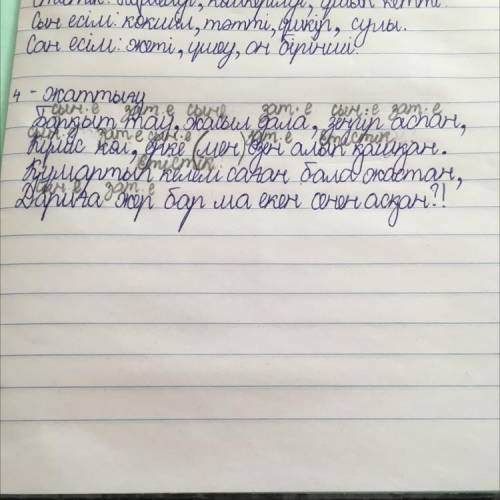 Сын есім: көкшіл, тәтті, үшкір, сулы.
Сан есім: жеті, үшеу, он бірінші.
4 - жаттығу
сын.е зат.е сын.е зат.е сын.е зат.е
Барқыт тау, жасыл дала, зеңгір аспан,
сын.е зат.е сын.е зат.е етістік
Күміс көл, ерке өзен алып қашқан.
етістік
Құмартып келем саған бала жастан,
сын.е зат.е
Дариға жер бар ма екен сенен асқан?!